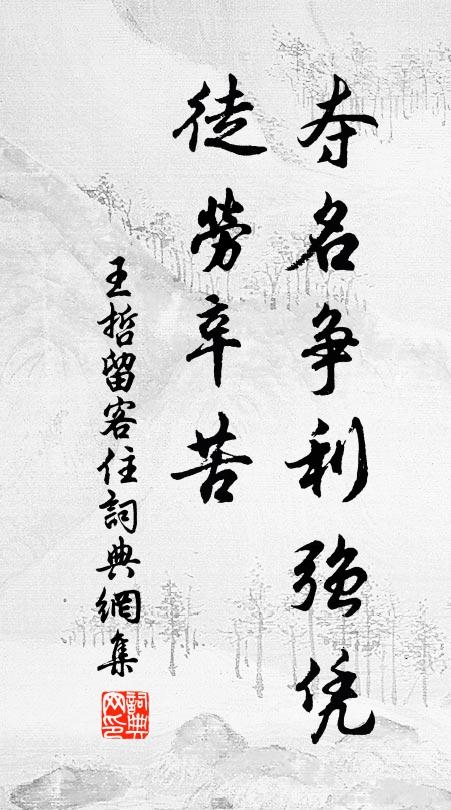 夺名争利强凭
徒劳辛苦
王哲留客住詞典網集
詞典网印